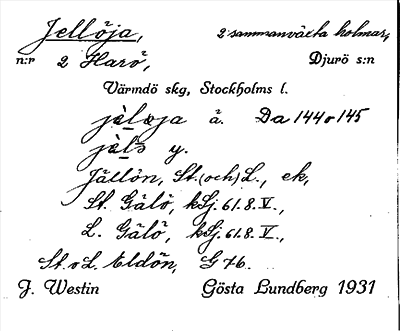 Jellöja, 2 sammanväxta holmar,
n:r 2 Harö, Djurö s:n
Värmdö skg, Stockholms l.
jèlọja å. Da 144 o 145
jèlö y.
Jällön, St. (och) L., ek,
St. Gälö, kSj. 61.8.V.,
L. Gälö, kSj. 61.8.V.,
St. o L. Eldön, G 76.
J. Westin Gösta Lundberg 1931